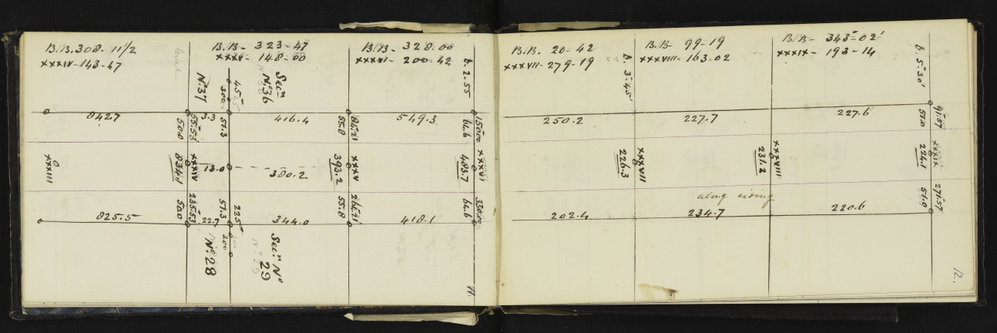 B.B. 308-11/2
XXXIV-143-47
B.B- 323-47
XXXV- 148-00
B.B- 328.00
XXXVI- 200.42
b. 2-55
No 37
Secn No 36
45°
300
842.7
3.3
51.3
416.4
549.3
50.0
55.8
64.6
0
XXXIII
834.1
XXXIV
13.0
380.2
393.2
XXXV
483.7
XXXVI
825.5
50.0
22.7
51.3
225°
200
344.0
55.8
418.1
64.6
No 28
Secn No 29
11.
B.B. 20-42
XXXVII-279-19
b. 3°45'
B.B- 99-19
XXXVIII-163-02
B.B- 343°02'
XXXIX- 193-14
b. 5°30'
250.2
227.7
227.6
51.0
226.3
XXXVII
231.2
XXXVIII
224.1
XXXIX
along siding
202.4
234.7
220.6
51.0
12.